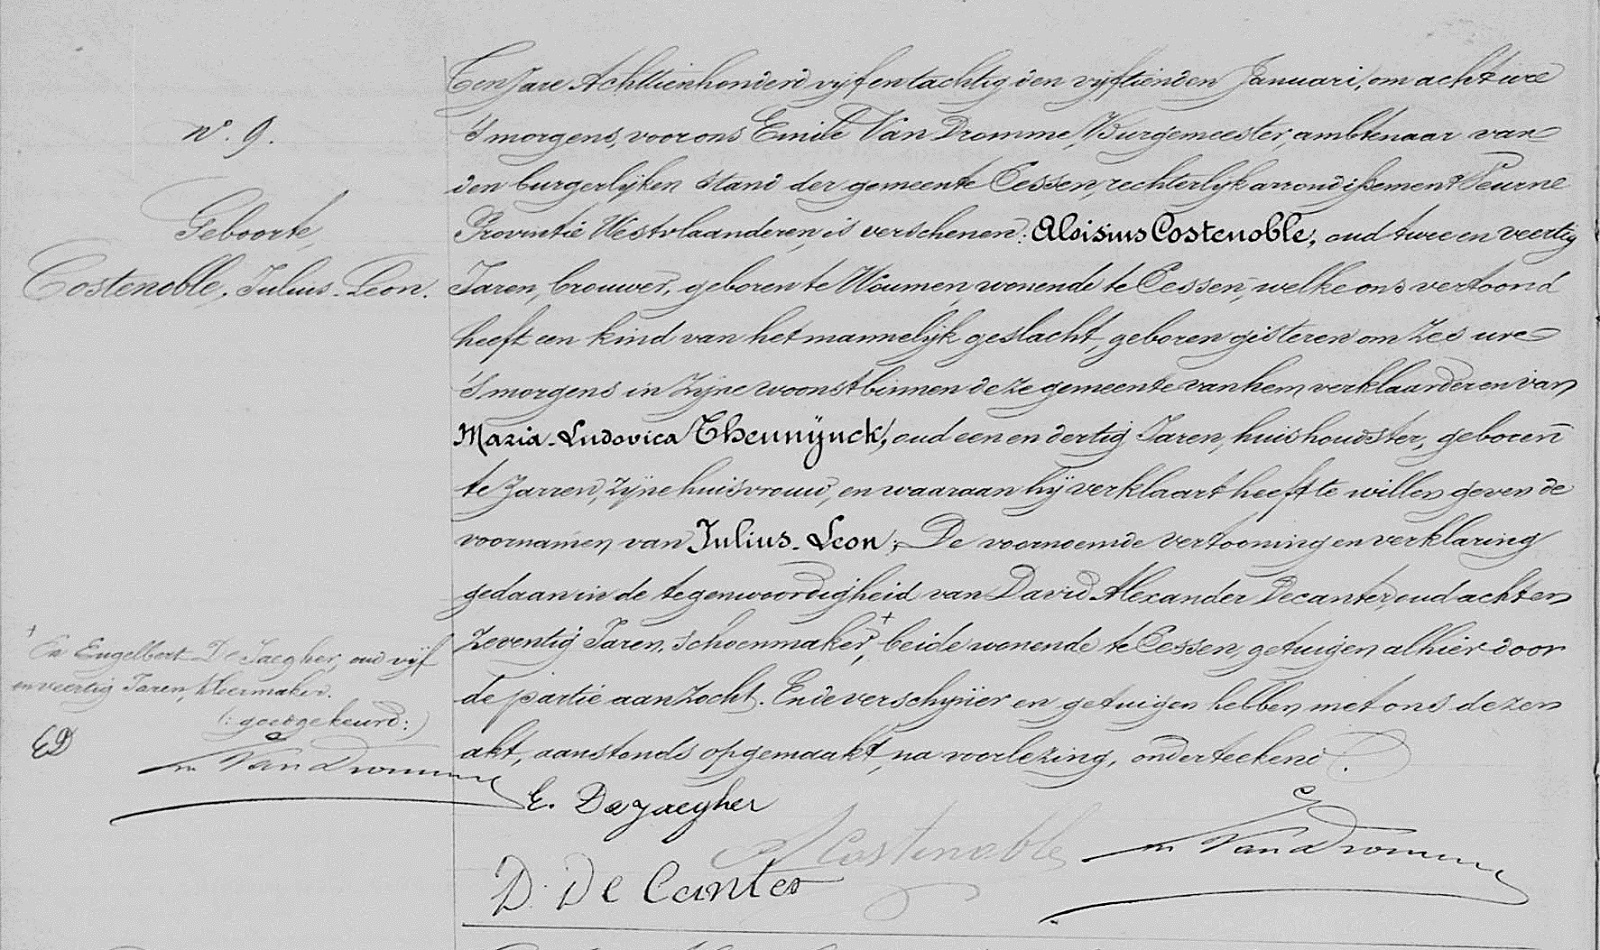 n.° 9.
Geboorte,
Costenoble, Julius-Leon.
Ten Jare Achttienhonderd vijfentachtig den vijftienden Januari, om acht ure
's morgens, voor ons Emile Van Dromme, Burgemeester, ambtenaar van
den burgerlijken stand der gemeente Eessen, rechterlijk arrondissement Veurne
Provintie Westvlaanderen, is verschenen: Aloisius Costenoble, oud twee en veertig
Jaren, brouwer, geboren te Woumen, wonende te Eessen, welke ons vertoond
heeft een kind van het mannelijk geslacht, geboren gisteren om zes ure
's morgens in zijne woonst binnen deze gemeente van hem verklaarder en van
Maria-Ludovica Theunÿnck, oud een en dertig Jaren, huishoudster, geboren
te Zarren, zijne huisvrouw, en waaraan hij verklaart heeft te willen geven de
voornamen van Julius-Leon; De voornoemde vertooning en verklaring
gedaan in de tegenwoordigheid van David Alexander Decanter, oud acht en
zeventig Jaren, schoenmaker,+ beide wonende te Eessen, getuigen alhier door
de partie aanzocht. En de verschijner en getuigen hebben met ons dezen
akt, aanstonds opgemaakt, na voorlezing, onderteekend.
+ En Engelbert De Jaegher, oud vijf
en veertig Jaren, kleermaker.
(: goedgekeurd :)
ED
Em Van Dromme
E. De Jaegher
A Costenoble
Em Van Dromme
D. De Canter